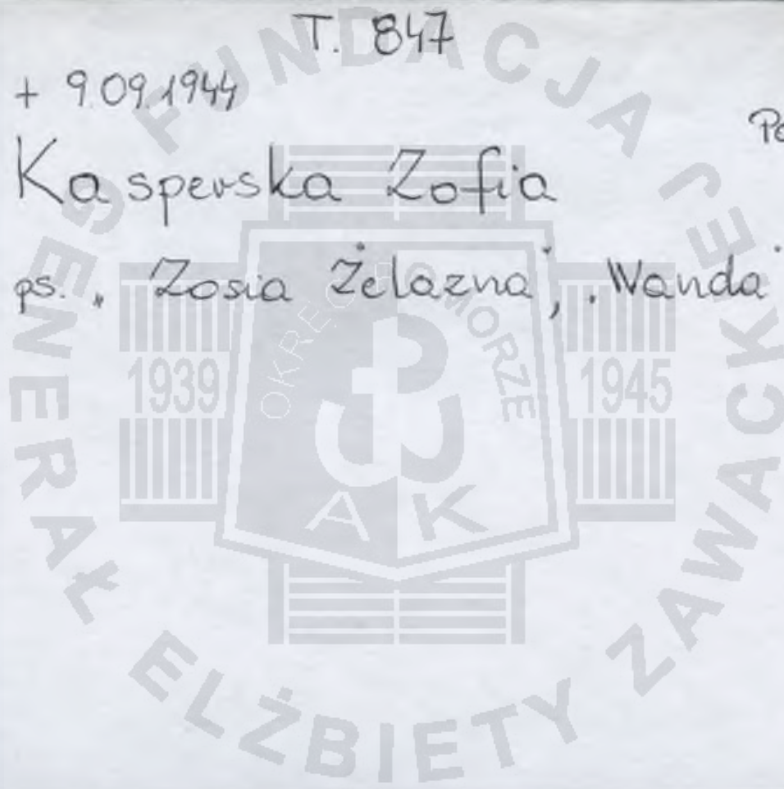 T. 847
+ 9.09.1944
Kasperska Zofia
ps. „Zosia Żelazna”, „Wanda”
FUNDACJA GENERAŁ ELŻBIETY ZAWACK
OKRĘG POMORZE
1939
1945
A K